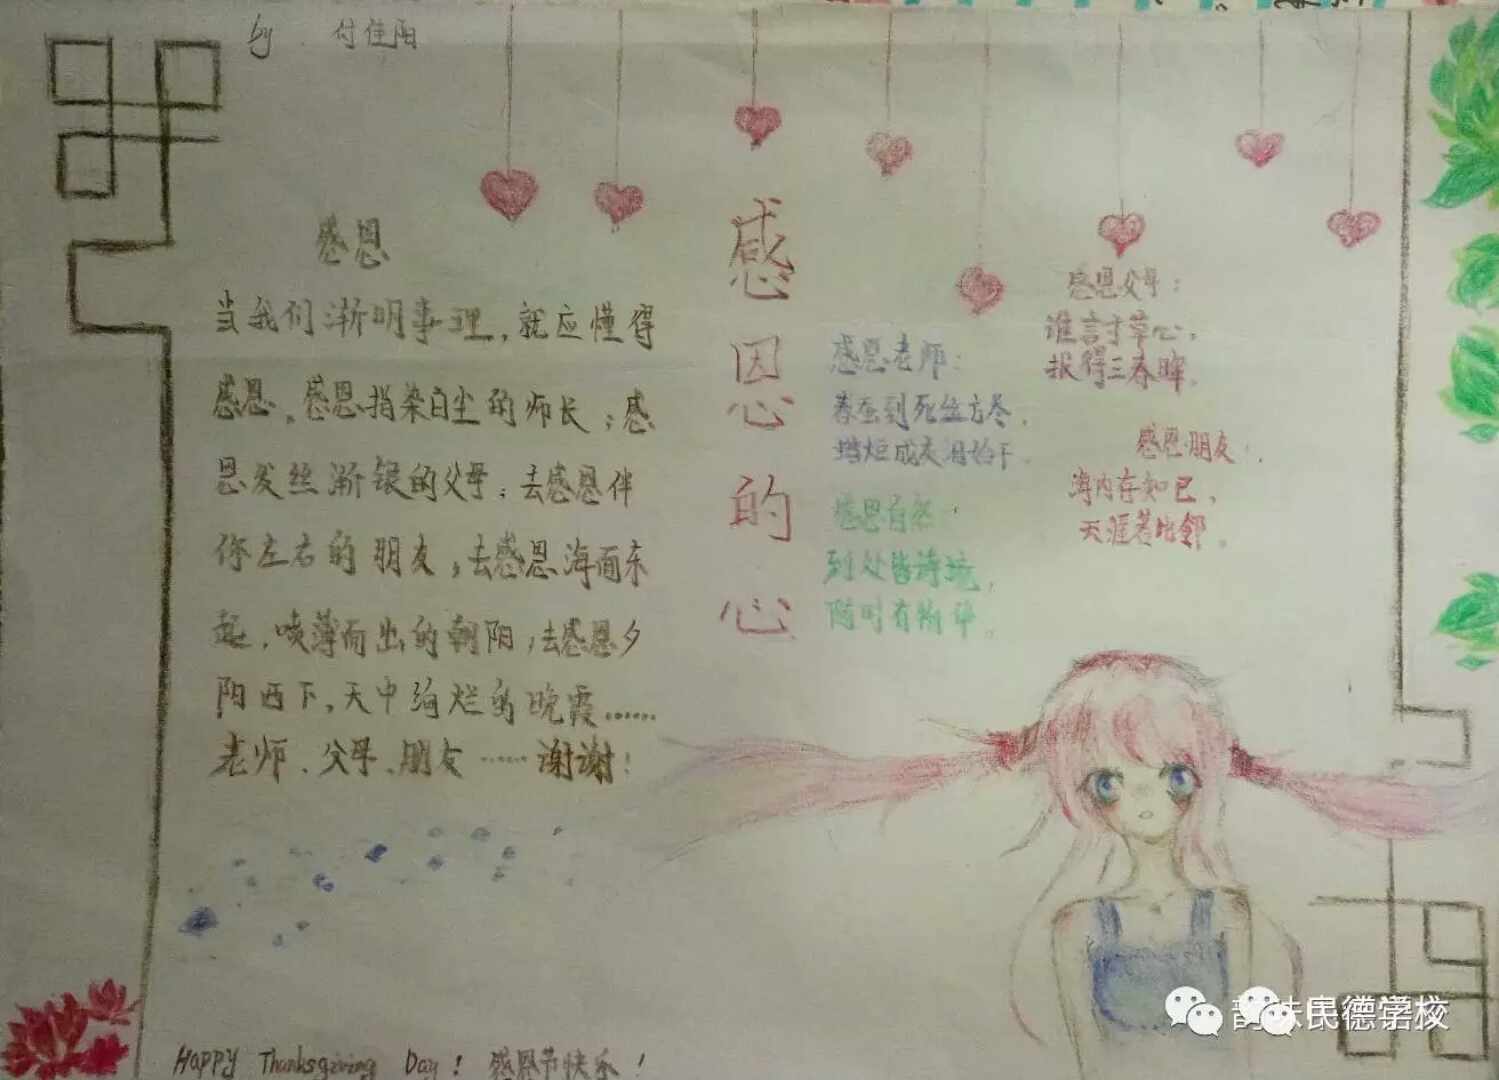 by 付佳阳
感恩
当我们渐明事理，就应懂得
感恩。感恩指染白尘的师长；感
恩发丝渐银的父母；去感恩伴
你左右的朋友；去感恩海面东
起，喷薄而出的朝阳；去感恩夕
阳西下，天中绚烂的晚霞……
老师、父母、朋友……谢谢！
感恩的心
感恩老师：
春蚕到死丝方尽，
蜡炬成灰泪始干。
感恩自然：
到处皆诗境，
随时有物华。
感恩父母：
谁言寸草心，
报得三春晖。
感恩朋友：
海内存知已，
天涯若比邻。
Happy Thanksgiving Day！感恩节快乐！
韵味民德学校